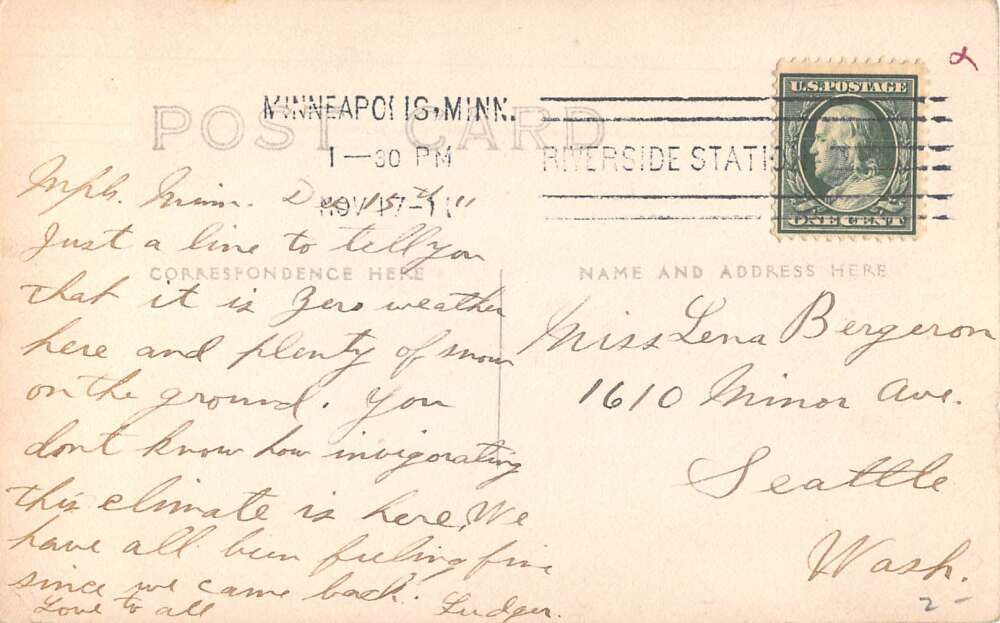 POST CARD
MINNEAPOLIS, MINN.
1—30 PM
NOV 17-11
RIVERSIDE STATION
U.S. POSTAGE
ONE CENT
Mpls. Minn. 15th 11
Just a line to tell you
CORRESPONDENCE HERE
that it is Zero weather
here and plenty of snow
on the ground. You
don't know how invigorating
this climate is here, We
have all been feeling fine
since we came back.
Love to all Ludger.
NAME AND ADDRESS HERE
Miss Lena Bergeron
1610 Minor Ave.
Seattle
Wash.
2-